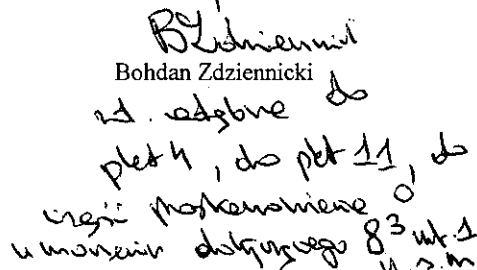 BZdziennicki
Bohdan Zdziennicki
zd. odrębne do
pkt 4, do pkt 11, do
części postanowienia o
umorzeniu dotyczącego 8³ ust. 1